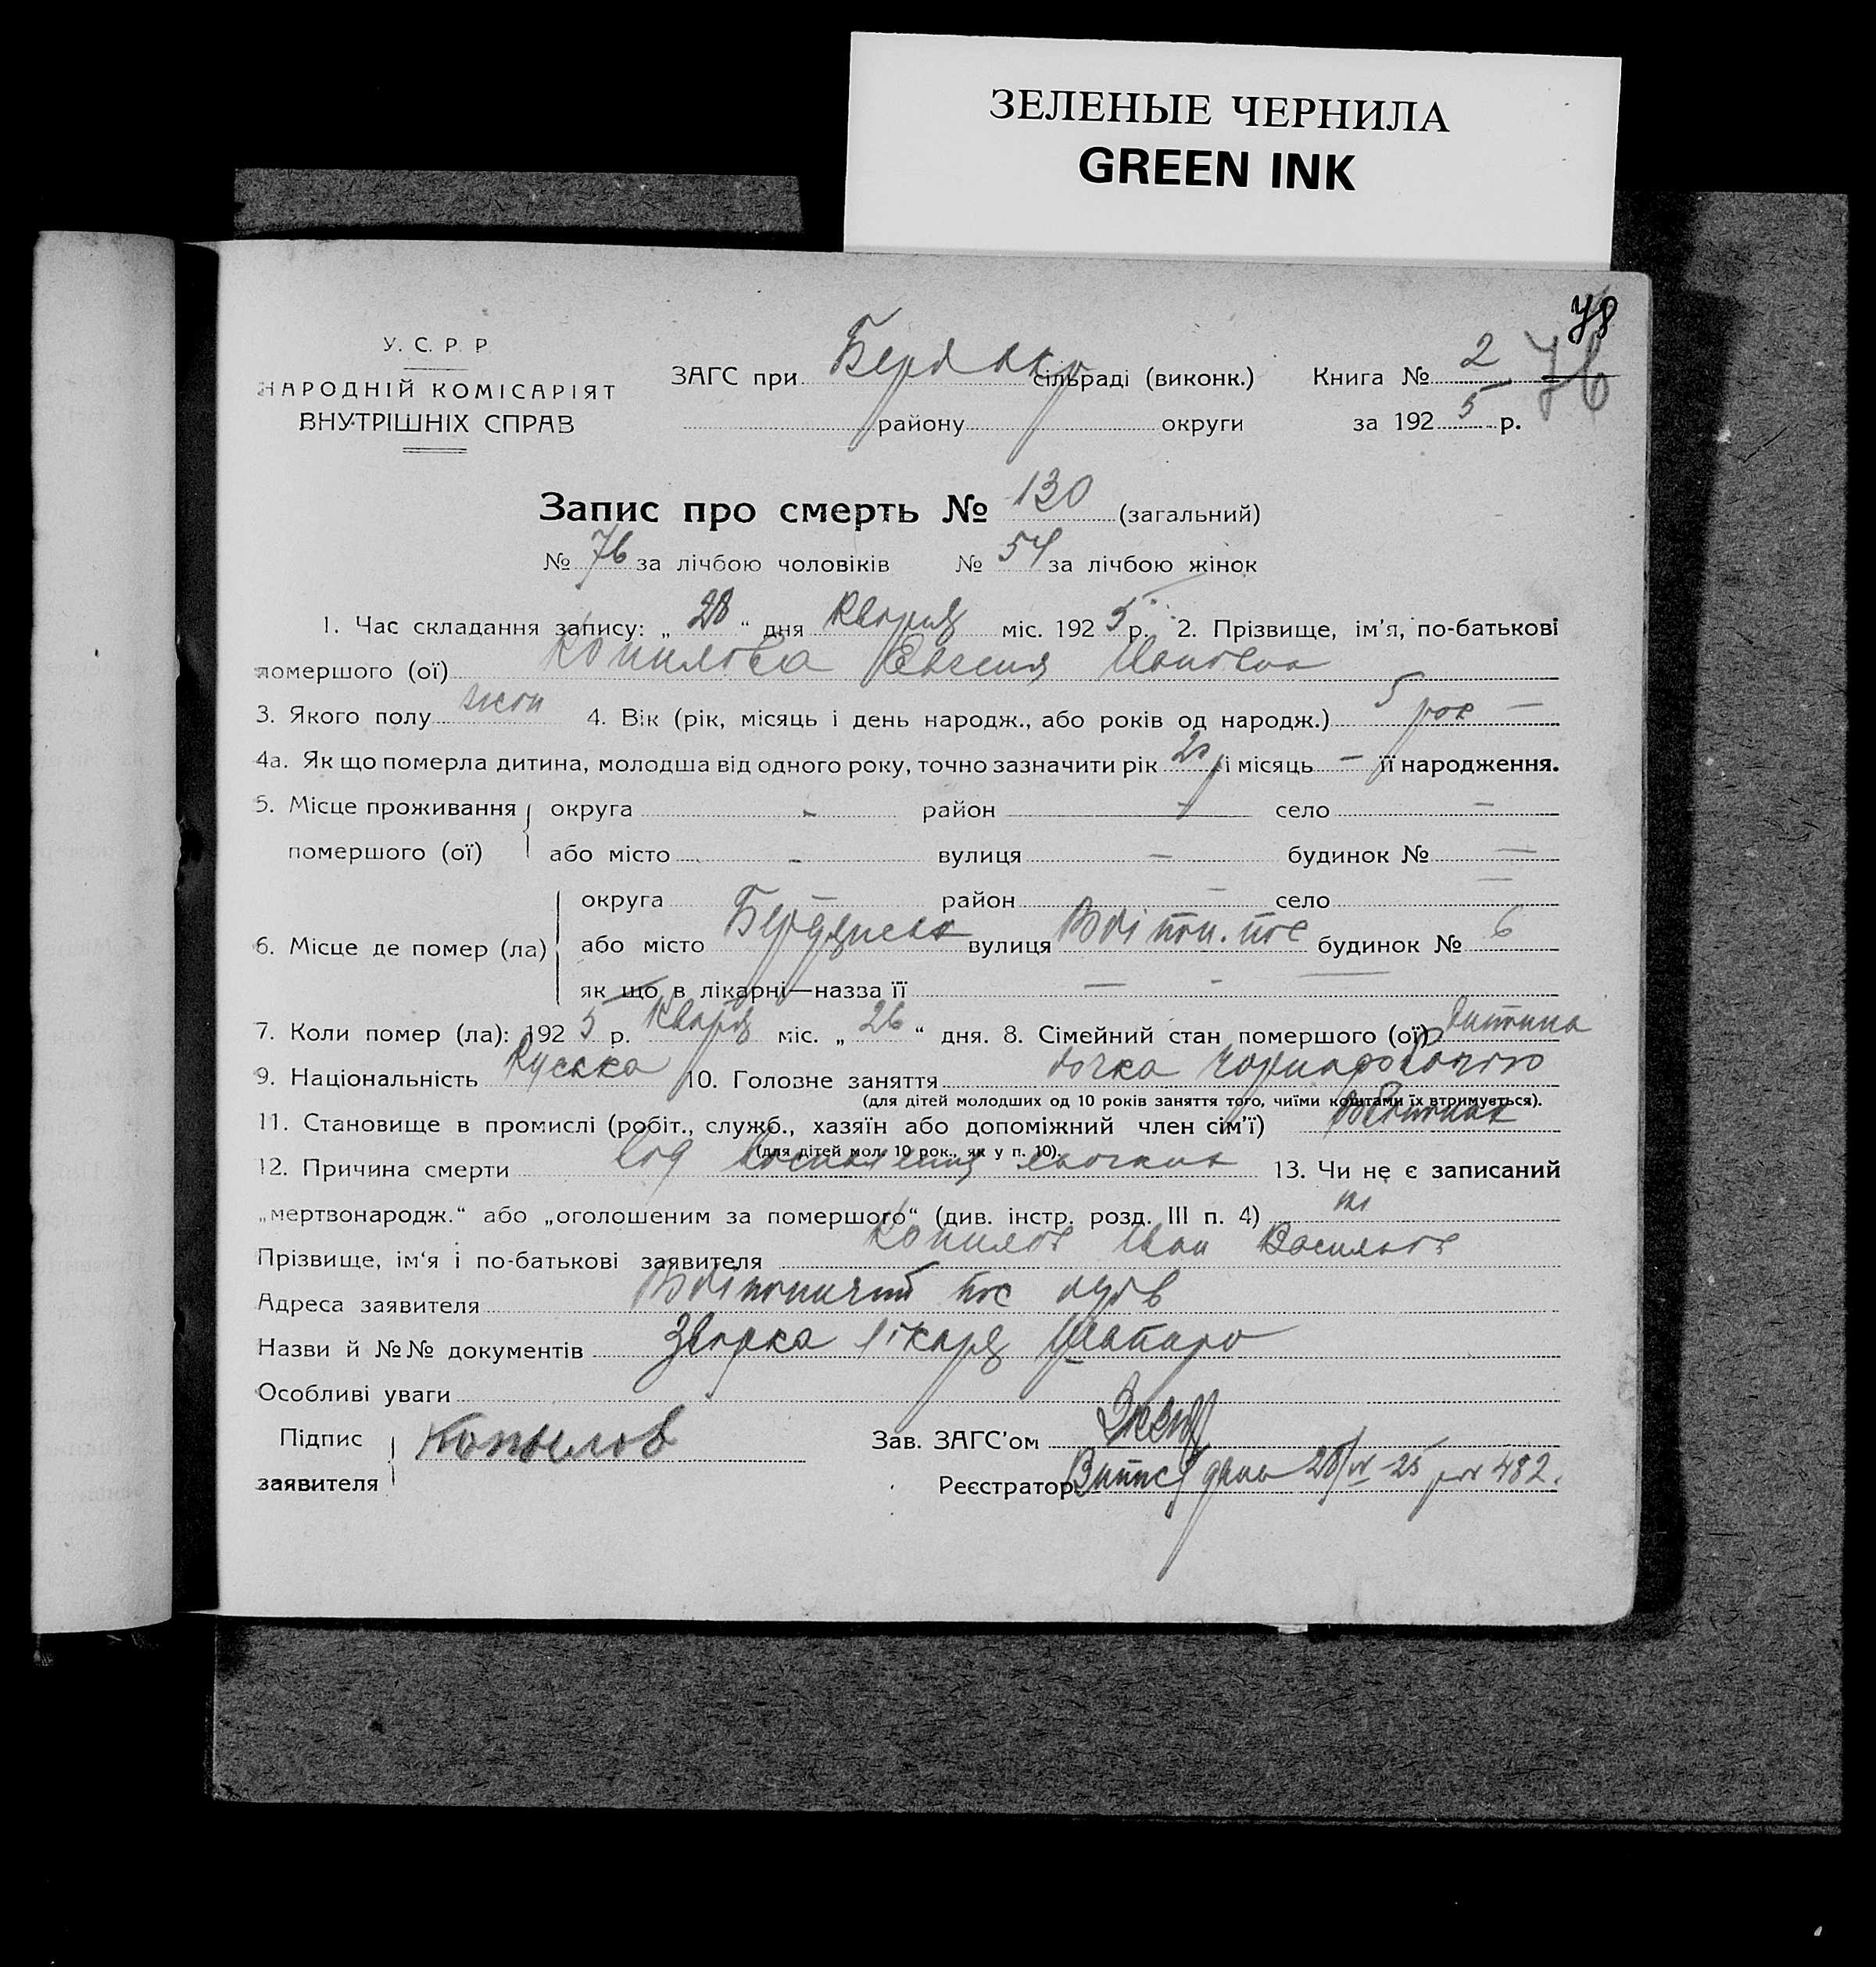 ЗЕЛЕНЫЕ ЧЕРНИЛА
GREEN INK
78
76
У. С. Р. Р.
НАРОДНІЙ КОМІСАРІЯТ
ВНУТРІШНІХ СПРАВ
ЗАГС при сільраді (виконк.) Книга № 2
району округи за 1925 р.
Запис про смерть № 130 (загальний)
№ 76 за лічбою чоловіків № 54 за лічбою жінок
1. Час складання запису: „28“ дня Квітня міс. 1925 р. 2. Прізвище, ім’я, по-батькові
помершого (ої) Копилова Евгения Ивановна
3. Якого полу жіноч 4. Вік (рік, місяць і день народж., або років од народж.) 5 рок —
4а. Як що померла дитина, молодша від одного року, точно зазначити рік і місяць — її народження.
5. Місце проживання округа - район - село —
помершого (ої) або місто - вулиця — будинок № —
округа — район — село —
6. Місце де помер (ла) або місто Бердянськ вулиця будинок № 6
як що в лікарні—назва її — -
7. Коли помер (ла): 1925 р. Квітня міс. „26“ дня. 8. Сімейний стан помершого (ої) дитина
9. Національність Руська 10. Головне заняття дочка чорнороботчого
(для дітей молодших од 10 років заняття того, чиїми коштами їх втримується).
11. Становище в промислі (робіт., служб., хазяїн або допоміжний член сім’ї)
(для дітей мол. 10 рок., як у п. 10).
12. Причина смерти од воспаления 13. Чи не є записаний
„мертвонародж.“ або „оголошеним за помершого“ (див. інстр. розд. III п. 4) ні
Прізвище, ім‘я і по-батькові заявителя Копилов Иван Васильов
Адреса заявителя
Назви й №№ документів лікаря Шапиро
Особливі уваги
Підпис Копылов Зав. ЗАГС’ом
заявителя Реєстратор Випись дана 28/IV-25 482.